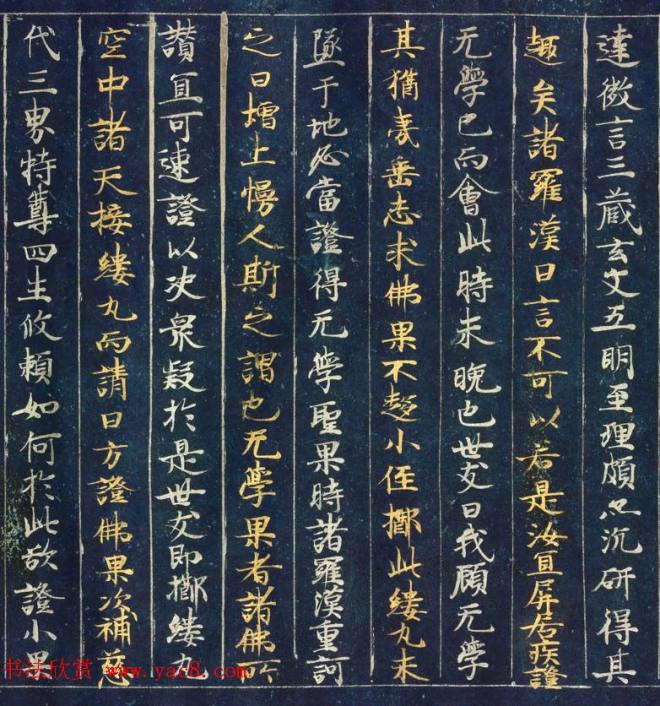 達微言三藏玄文五明至理頗亦沉研得其
趣矣諸羅漢曰言不可以若是汝宜屏居疾證
无學已而會此時未晚也世友曰我顧无學
其猶洟唾志求佛果不趍小徑擲此縷丸未
墜于地必當證得无學聖果時諸羅漢重訶
之曰增上慢人斯之謂也无學果者諸佛所
讚宜可速證以決衆疑於是世友即擲縷丸
空中諸天接縷丸而請曰方證佛果次補慈
代三界特尊四生攸賴如何於此欲證小果
书法欣赏 www.yac8.com